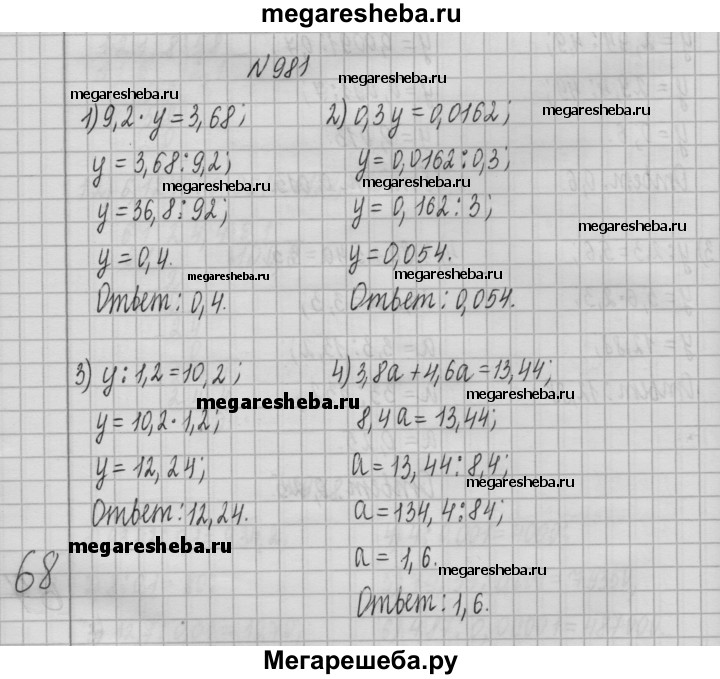 megaresheba.ru
N 981
megaresheba.ru
megaresheba.ru
1) 9,2 · y = 3,68;
y = 3,68 : 9,2;
megaresheba.ru
y = 36,8 : 92;
y = 0,4.
megaresheba.ru
Ответ: 0,4.
2) 0,3y = 0,0162;
megaresheba.ru
y = 0,0162 : 0,3;
megaresheba.ru
y = 0,162 : 3;
megaresheba.ru
y = 0,054.
megaresheba.ru
Ответ: 0,054.
3) y : 1,2 = 10,2;
megaresheba.ru
y = 10,2 · 1,2;
y = 12,24;
Ответ: 12,24.
megaresheba.ru
4) 3,8a + 4,6a = 13,44;
megaresheba.ru
8,4a = 13,44;
a = 13,44 : 8,4;
megaresheba.ru
a = 134,4 : 84;
a = 1,6.
megaresheba.ru
Ответ: 1,6.
68
Мегарешеба.ру